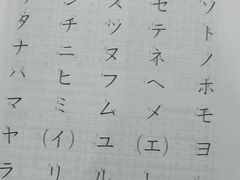 ス セ ソ
タ チ ツ テ ト
ナ ニ ヌ ネ ノ
ハ ヒ フ ヘ ホ
マ ミ ム メ モ
ヤ (イ) ユ (エ) ヨ
ラ リ ル